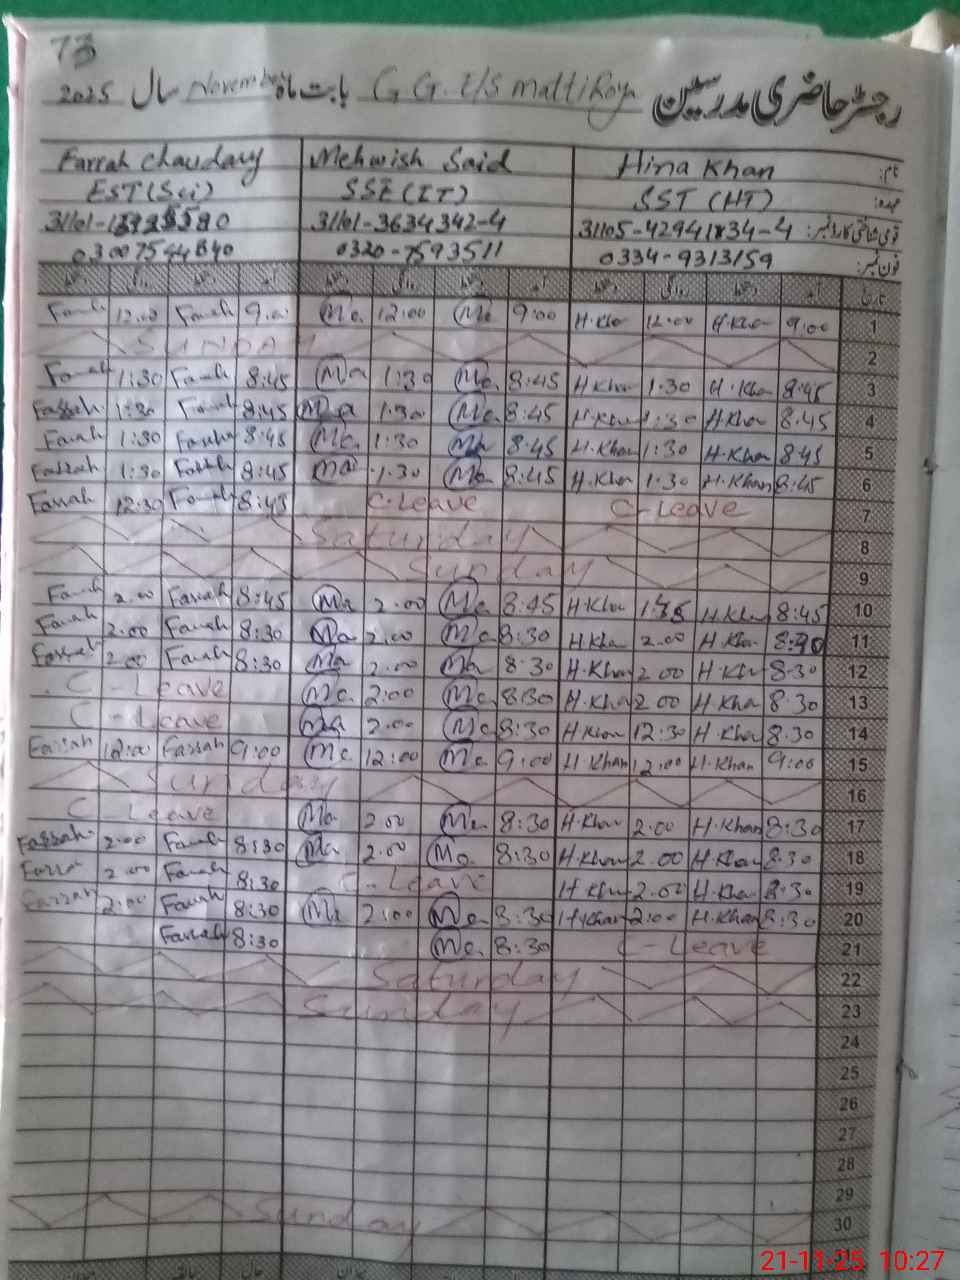 73
رجسٹر حاضری مدرسین G G. E/S mattikoya بابت ماہ November سال 2025
نام: Hina Khan Mehwish Said Farrah Chaudary
عہدہ: SST (HT) SSE (IT) EST (Sci)
قومی شناختی کارڈ نمبر: 31101-3634342-4
فون نمبر: 0334-9313159 0320-7593511 03007544640
تاریخ آمد دستخط روانگی دستخط آمد دستخط روانگی دستخط آمد دستخط روانگی دستخط
1 9:00 H.Kha 12:00 H.Kha 9:00 Me 12:00 Me 9:00 Farrah 12:00 Farrah
2 SUNDAY
3 8:45 H.Kha 1:30 H Kha 8:45 Me 1:30 Ma 8:45 Farrah 1:30 Farrah
4 8:45 H.Kha 1:30 H-Khan 8:45 Ma 1:30 Ma 8:45 Farrah 1:30 Farrah
5 8:45 H.Kha 1:30 H.Khan 8:45 Ma 1:30 Me 8:45 Farrah 1:30 Farrah
6 8:45 H.Khan 1:30 H.Kha 8:45 Me 1:30 Ma 8:45 Farrah 1:30 Farrah
7 C-Leave C-Leave 8:45 Farrah 12:30 Farrah
8 Saturday
9 Sunday
10 8:45 H.Kha H.Kha 8:45 Me 2.00 Ma 8:45 Farrah 2.00 Farrah
11 H.Kha 2.00 H.Kha 8:30 Me 2.00 Ma 8:30 Farrah 2.00 Farrah
12 8.30 H.Kha 2.00 H.Khan 8.30 Ma 2.00 Ma 8:30 Farrah 2.00 Farrah
13 8.30 H.Kha 2.00 H.Kha 8:30 Me 2:00 Me C-Leave
14 8.30 H.Kha 12:30 H.Khan 8:30 Me 2.00 Ma C-Leave
15 9:00 H.Khan 12:00 H.Khan 9:00 Me 12:00 Me 9:00 Farrah 12:00 Farrah
16 Sunday
17 8:30 H.Khan 2.00 H.Khan 8:30 Me 2.00 Ma C Leave
18 8.30 H.Khan 2.00 H.Khan 8:30 Me 2.00 Ma 8:30 Farrah 2.00 Farrah
19 8.30 H.Kha 2.00 H Khan C-Leave 8:30 Farrah 2.00 Farrah
20 8:30 H.Khan 2:00 H.Khan 8:30 Me 2:00 Me 8:30 Farrah 2:00 Farrah
21 C-Leave 8:30 Me 8:30 Farrah
22 Saturday
23 Sunday
24
25
26
27
28
29
30 Sunday
21-11-25 10:27